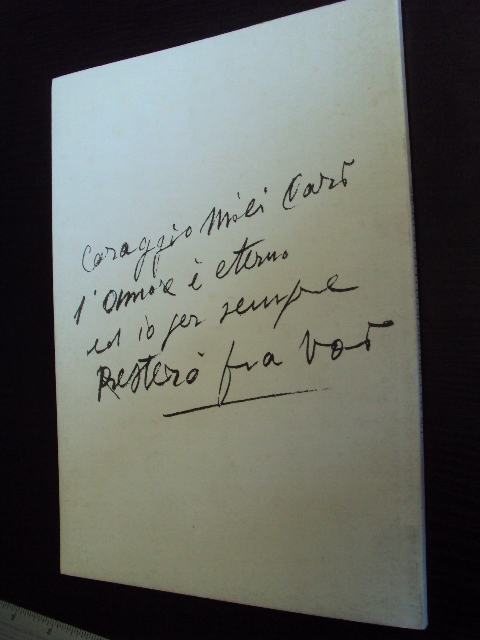 Coraggio Miei Cari
l'amore è eterno
ed io per sempre
Resterò fra voi